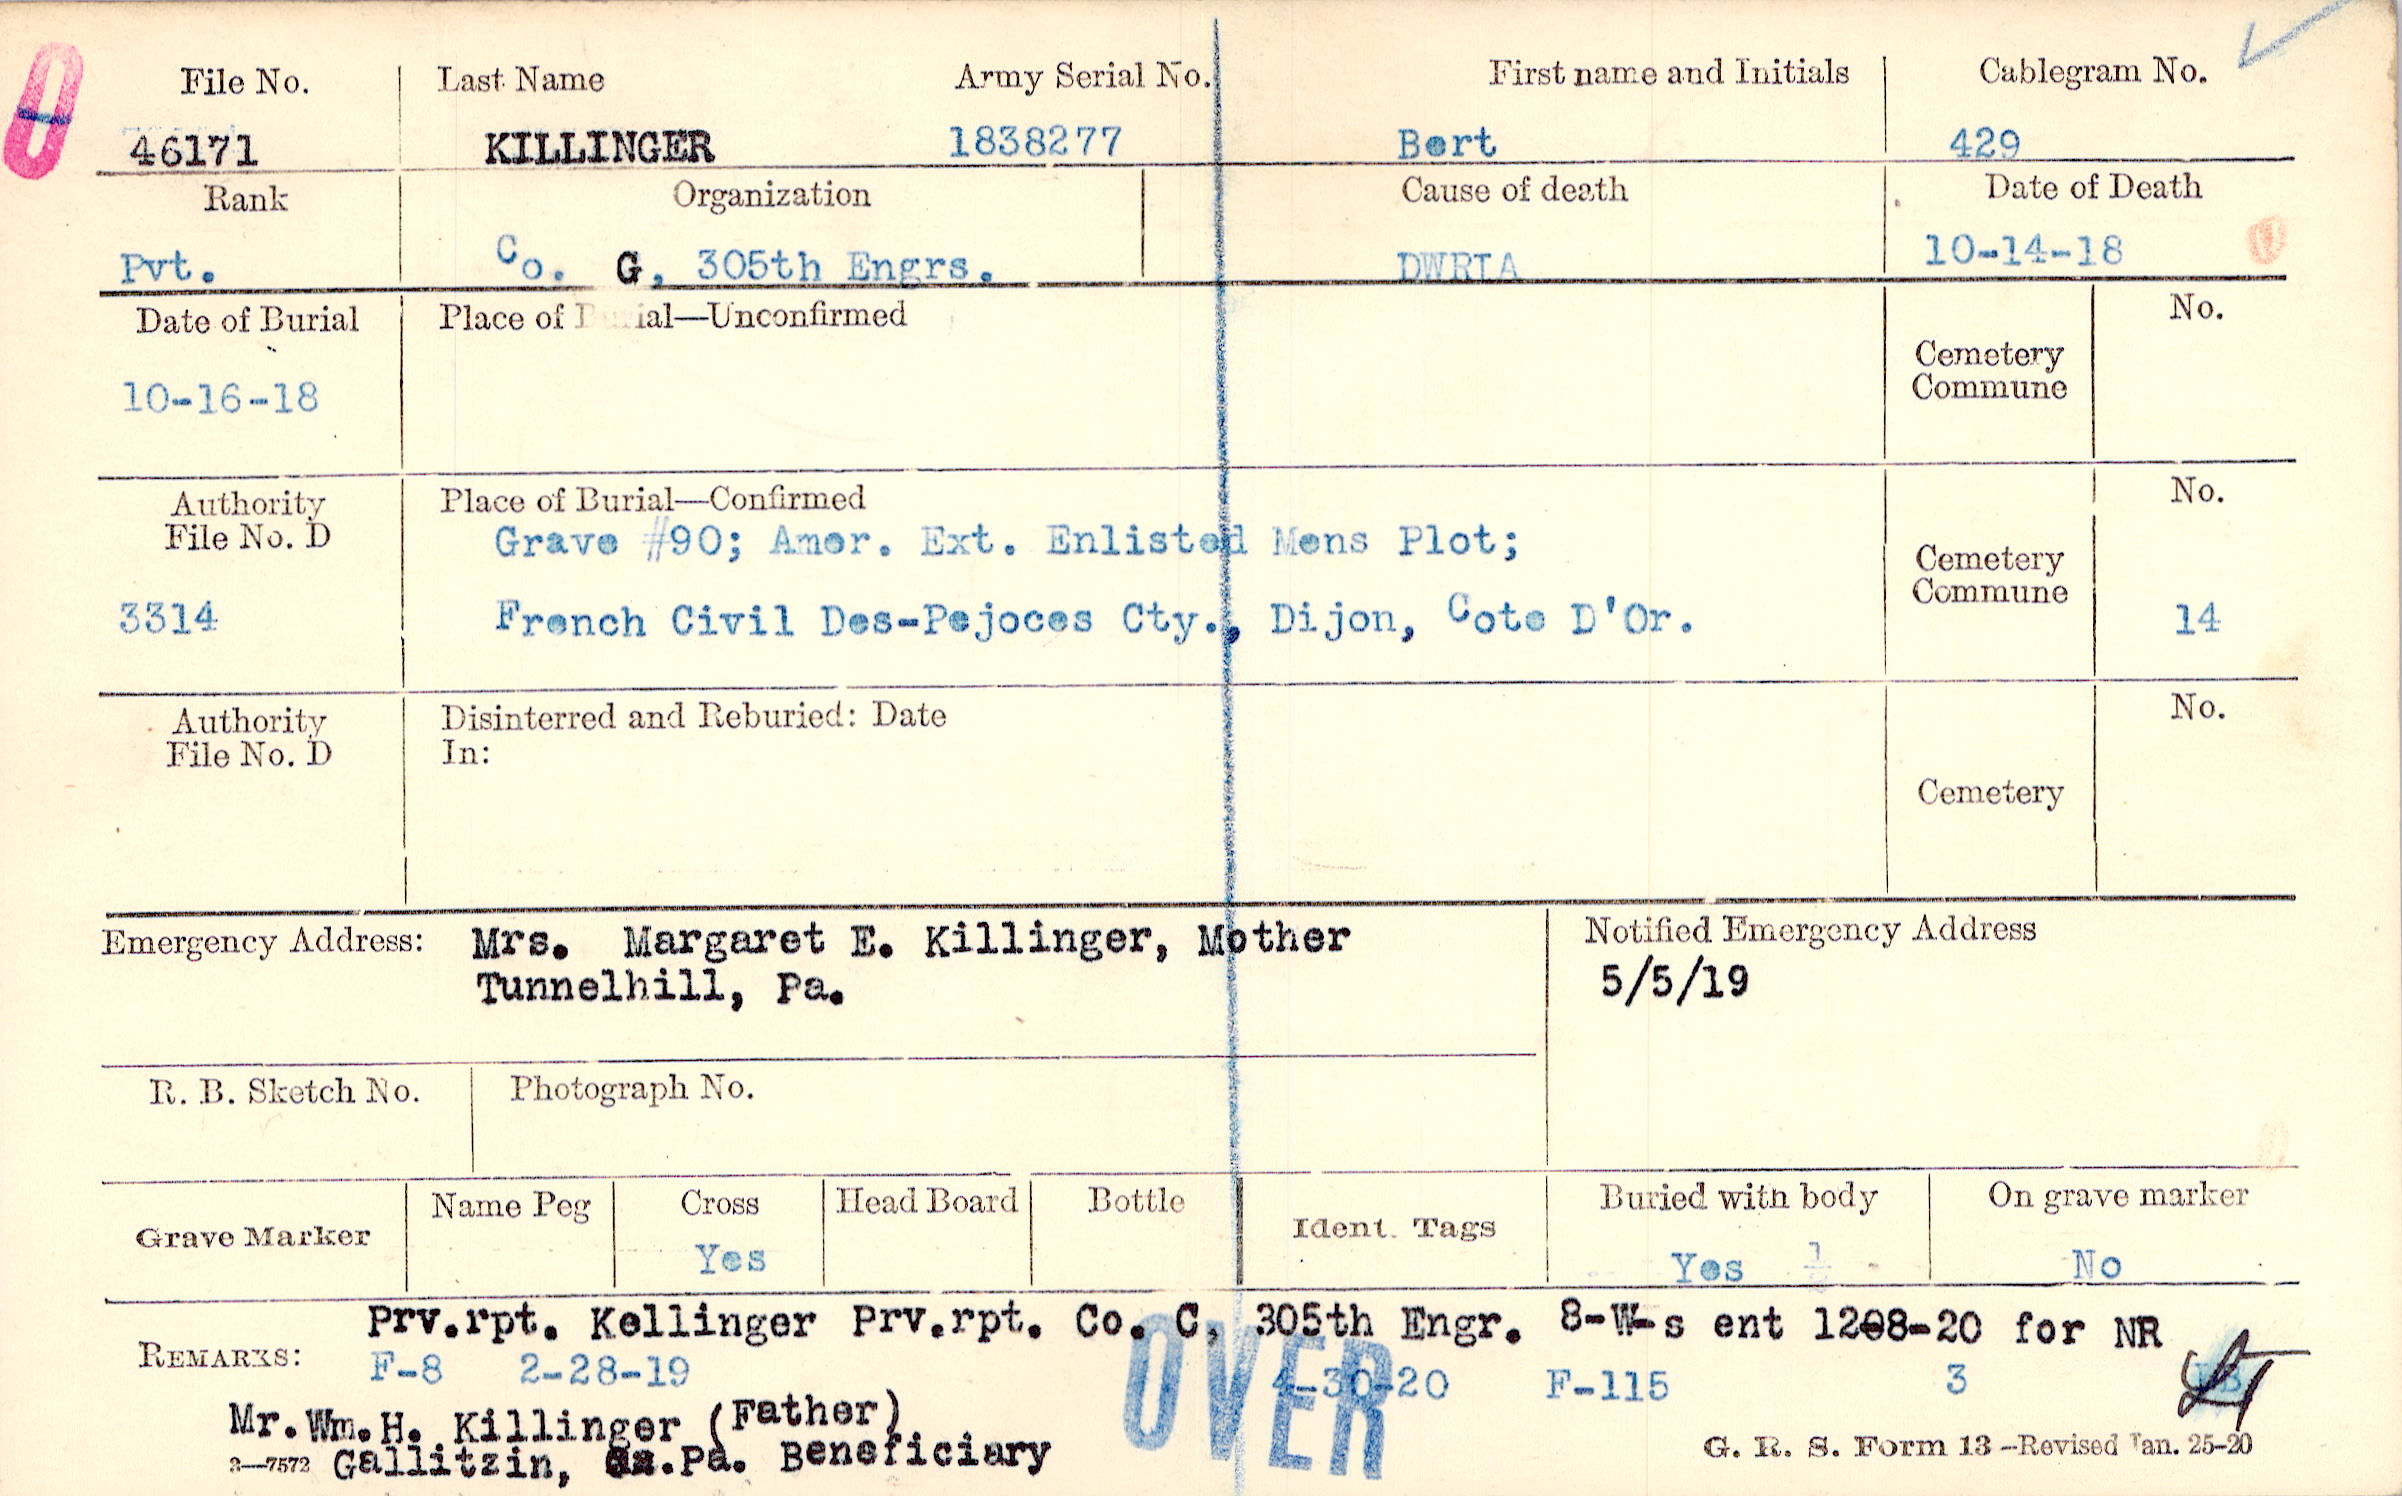 File No. Last Name Army Serial No. First name and Initials Cablegram No.
46171 KILLINGER 1838277 Bert 429
Rank Organization Cause of death Date of Death
Pvt. Co. G, 305th Engrs. DWRIA 10-14-18
Date of Burial Place of Burial—Unconfirmed No.
Cemetery
Commune
10-16-18
Authority Place of Burial—Confirmed No.
File No. D Grave #90; Amer. Ext. Enlisted Mens Plot;
Cemetery
Commune
3314 French Civil Des-Pejoces Cty., Dijon, Cote D'Or. 14
Authority Disinterred and Reburied: Date No.
File No. D In:
Cemetery
Emergency Address: Mrs. Margaret E. Killinger, Mother Notified Emergency Address
Tunnelhill, Pa. 5/5/19
R. B. Sketch No. Photograph No.
Name Peg Cross Head Board Bottle Buried with body On grave marker
Grave Marker Ident. Tags
Yes Yes 1 No
Prv.rpt. Kellinger Prv.rpt. Co. C, 305th Engr. 8-W-s ent 1208-20 for NR
REMARKS: F-8 2-28-19 4-30-20 F-115 3
OVER
Mr.Wm.H. Killinger (Father)
2—7572 Gallitzin, Pa. Beneficiary G. R. S. Form 13—Revised Jan. 25-20